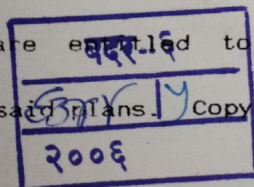 are entitled to
बदर-६
said plans. Copy
२००६